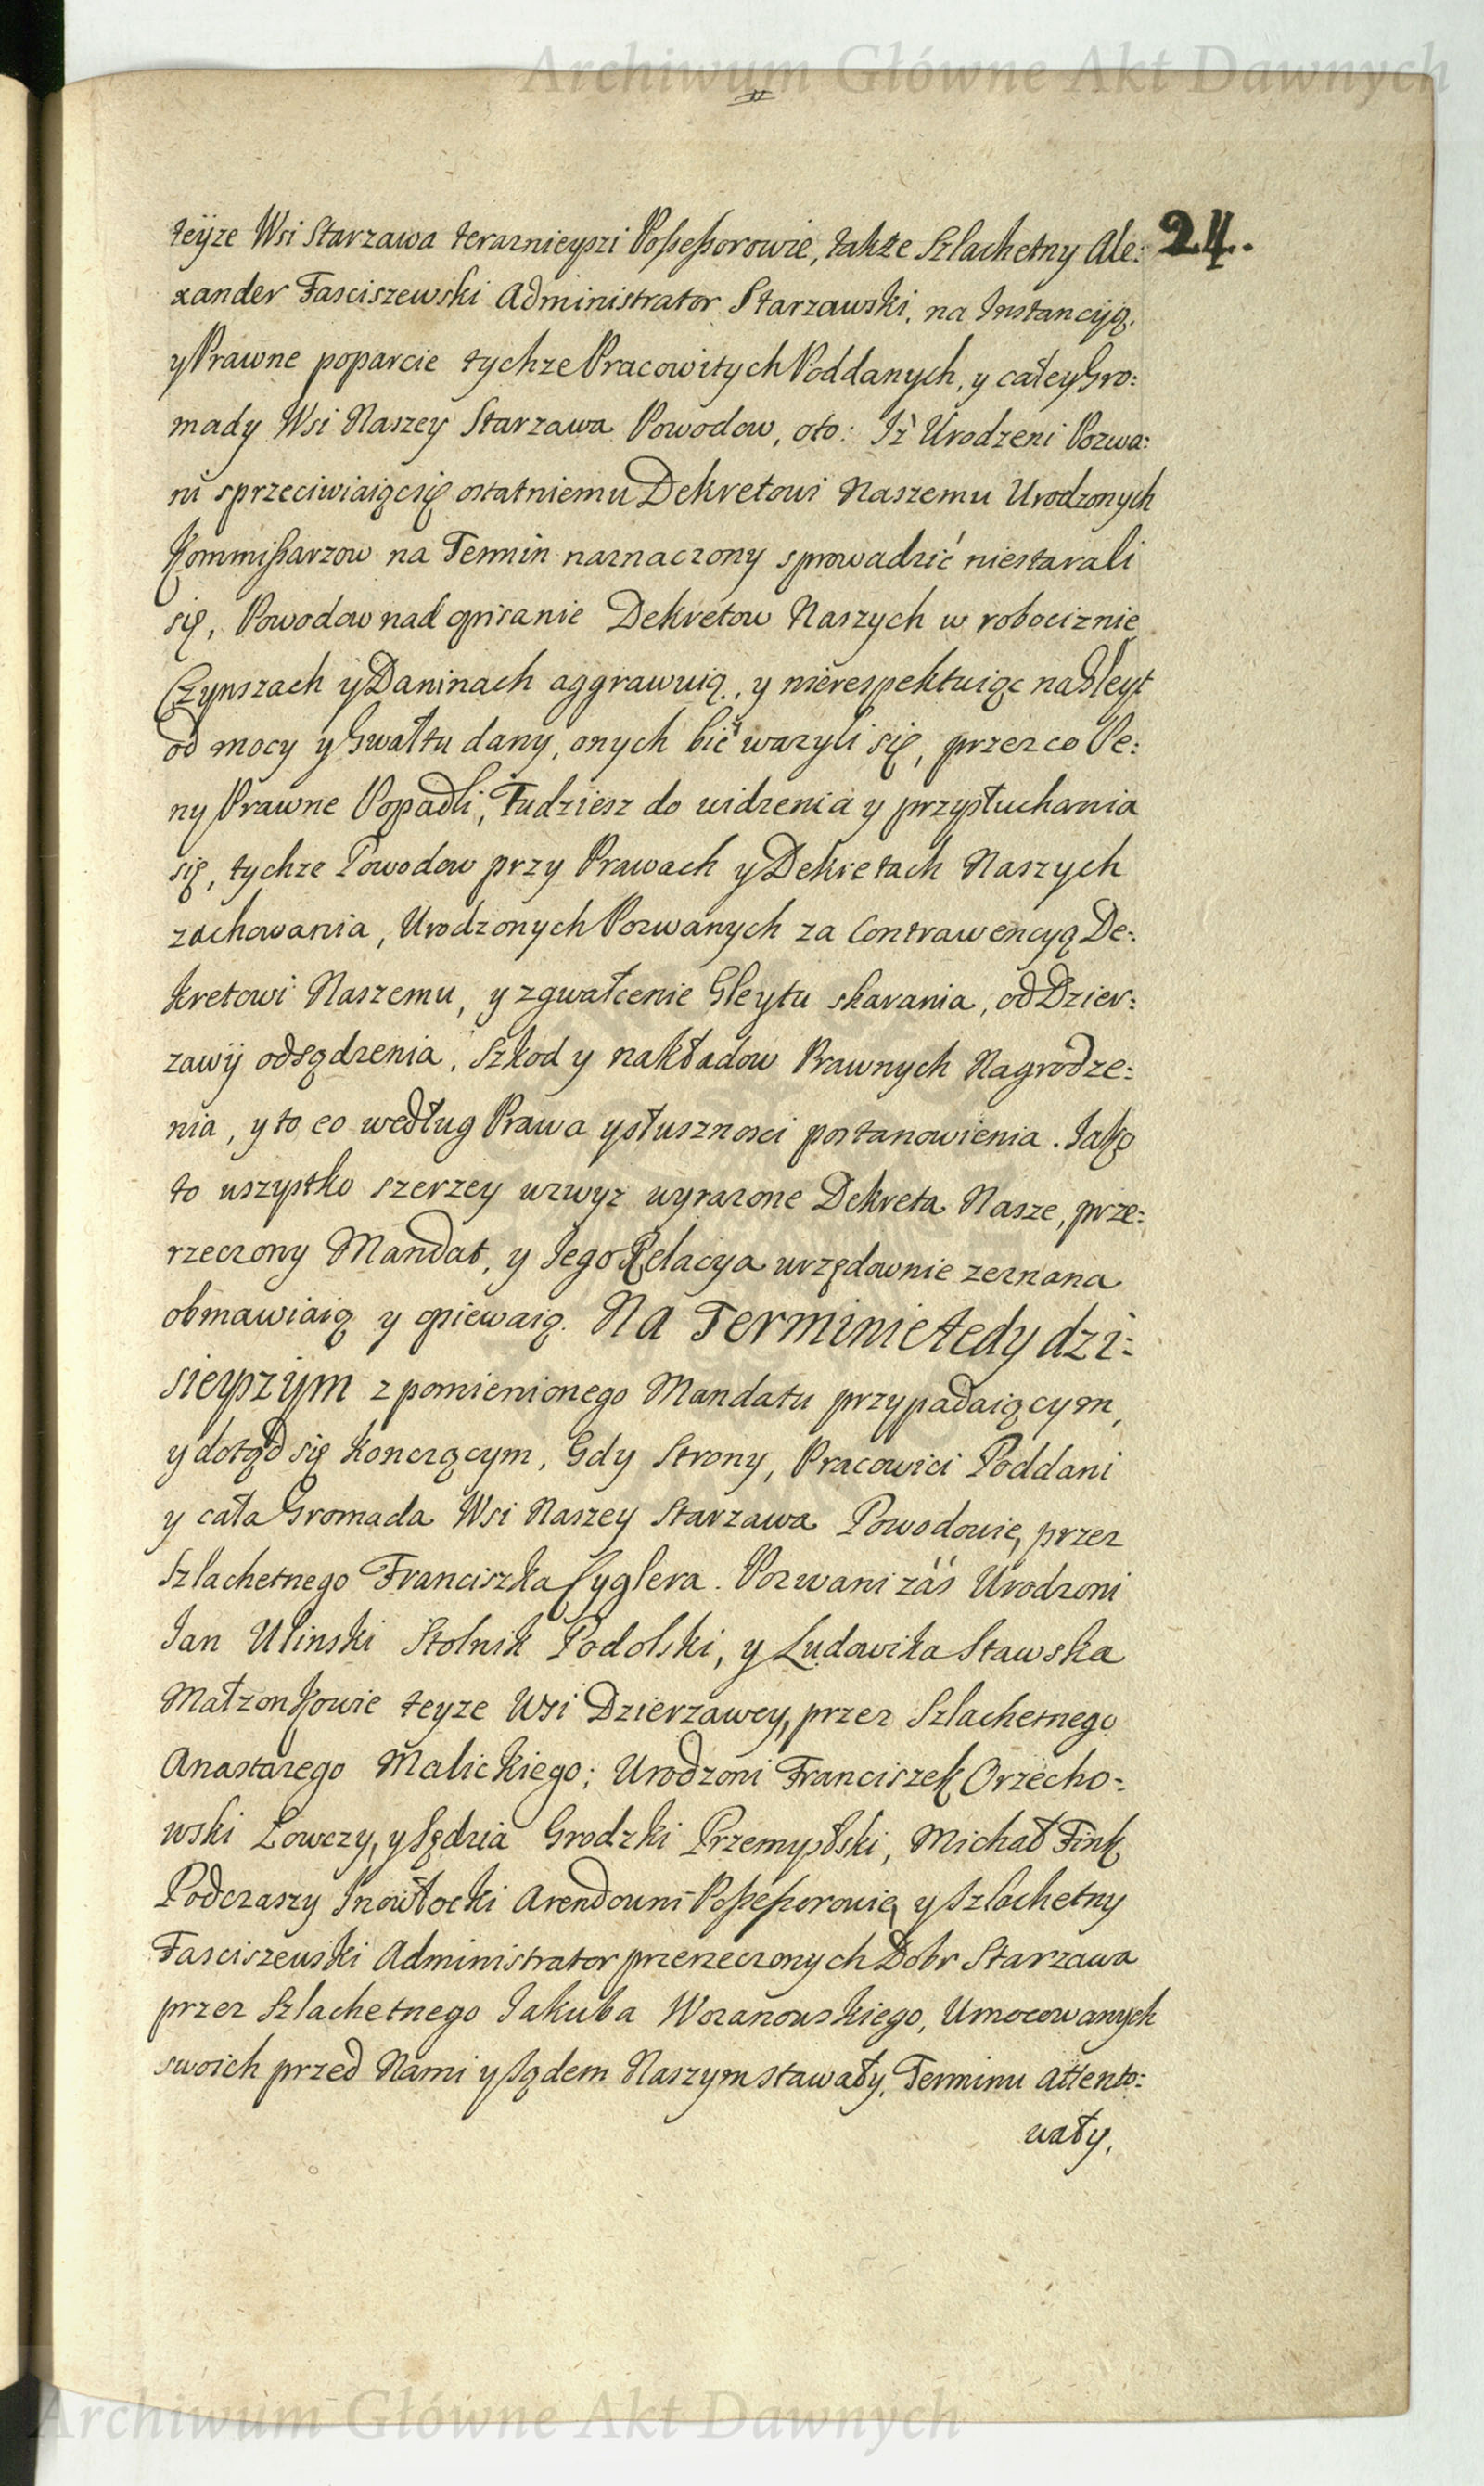 Archiwum Główne Akt Dawnych
24.
teÿze Wsi Starzawa terazniejszi Possessorowie, także Szlachetny Ale:
xander Fasciszewski Administrator Starzawski, na Instancyją.
y Prawne poparcie tychze Pracowitych Poddanych, y całey Gro:
mady Wsi Naszey Starzawa Powodow, oto: Iż Urodzeni Pozwa:
ni sprzeciwiaiącsię ostatniemu Dekretowi Naszemu Urodzonych
Kommissarzow na Termin naznaczony sprowadzić niestarali
się, Powodow nad opisanie Dekretow Naszych w robociznie
Czynszach y Daninach aggrawuią, y nierespektuiąc na Gleyt
od mocy y Gwałtu dany, onych bić wazyli się, przez co Pe:
ny Prawne Popadli, Tudziesz do widzenia y przysłuchania
się, tychze Powodow przy Prawach y Dekretach Naszych
zachowania, Urodzonych Pozwanych za Contrawencyą De:
kretowi Naszemu, y zgwałcenie Gleytu skarania, od Dzier:
zawÿ odsądzenia, Szkod y nakładow Prawnych Nagrodze:
nia, y to co według Prawa y słusznosci postanowienia. Jako
to wszystko szerzey wzwyz wyrazone Dekreta Nasze, prze:
rzeczony Mandat, y Jego Relacya urzędownie zeznana
obmawiaią y opiewaią. Na Terminie tedy dzi:
sieyszÿm z pomienionego Mandatu przypadaiącym,
y dotąd się konczącym, Gdy Strony, Pracowici Poddani
y cała Gromada Wsi Naszey Starzawa Powodowie, przez
Szlachetnego Franciszka Cyglera. Pozwani záś Urodzoni
Jan Ulinski Stolnik Podolski, y Ludowika Stawska
Małzonkowie teyze Wsi Dzierzawcy, przez Szlachetnego
Anastazego Malickiego; Urodzoni Franciszek Orzecho:
wski Łowczy, y Sędzia Grodzki Przemyslski, Michał Fink
Podczaszy Inowłocki Arendowni Possessorowie, y Szlachetny
Fasciszewski Administrator przerzeczonych Dobr Starzawa
przez Szlachetnego Jakuba Wozanowskiego, Umocowanych
swoich przed Nami y Sądem Naszym stawały, Terminu attento:
wały,
Archiwum Główne Akt Dawnych